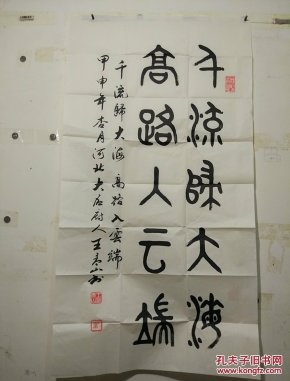 千流歸大海
高路入云端
千流歸大海 高路入雲端
甲申年杏月河北大居尉人王山书
孔夫子旧书网